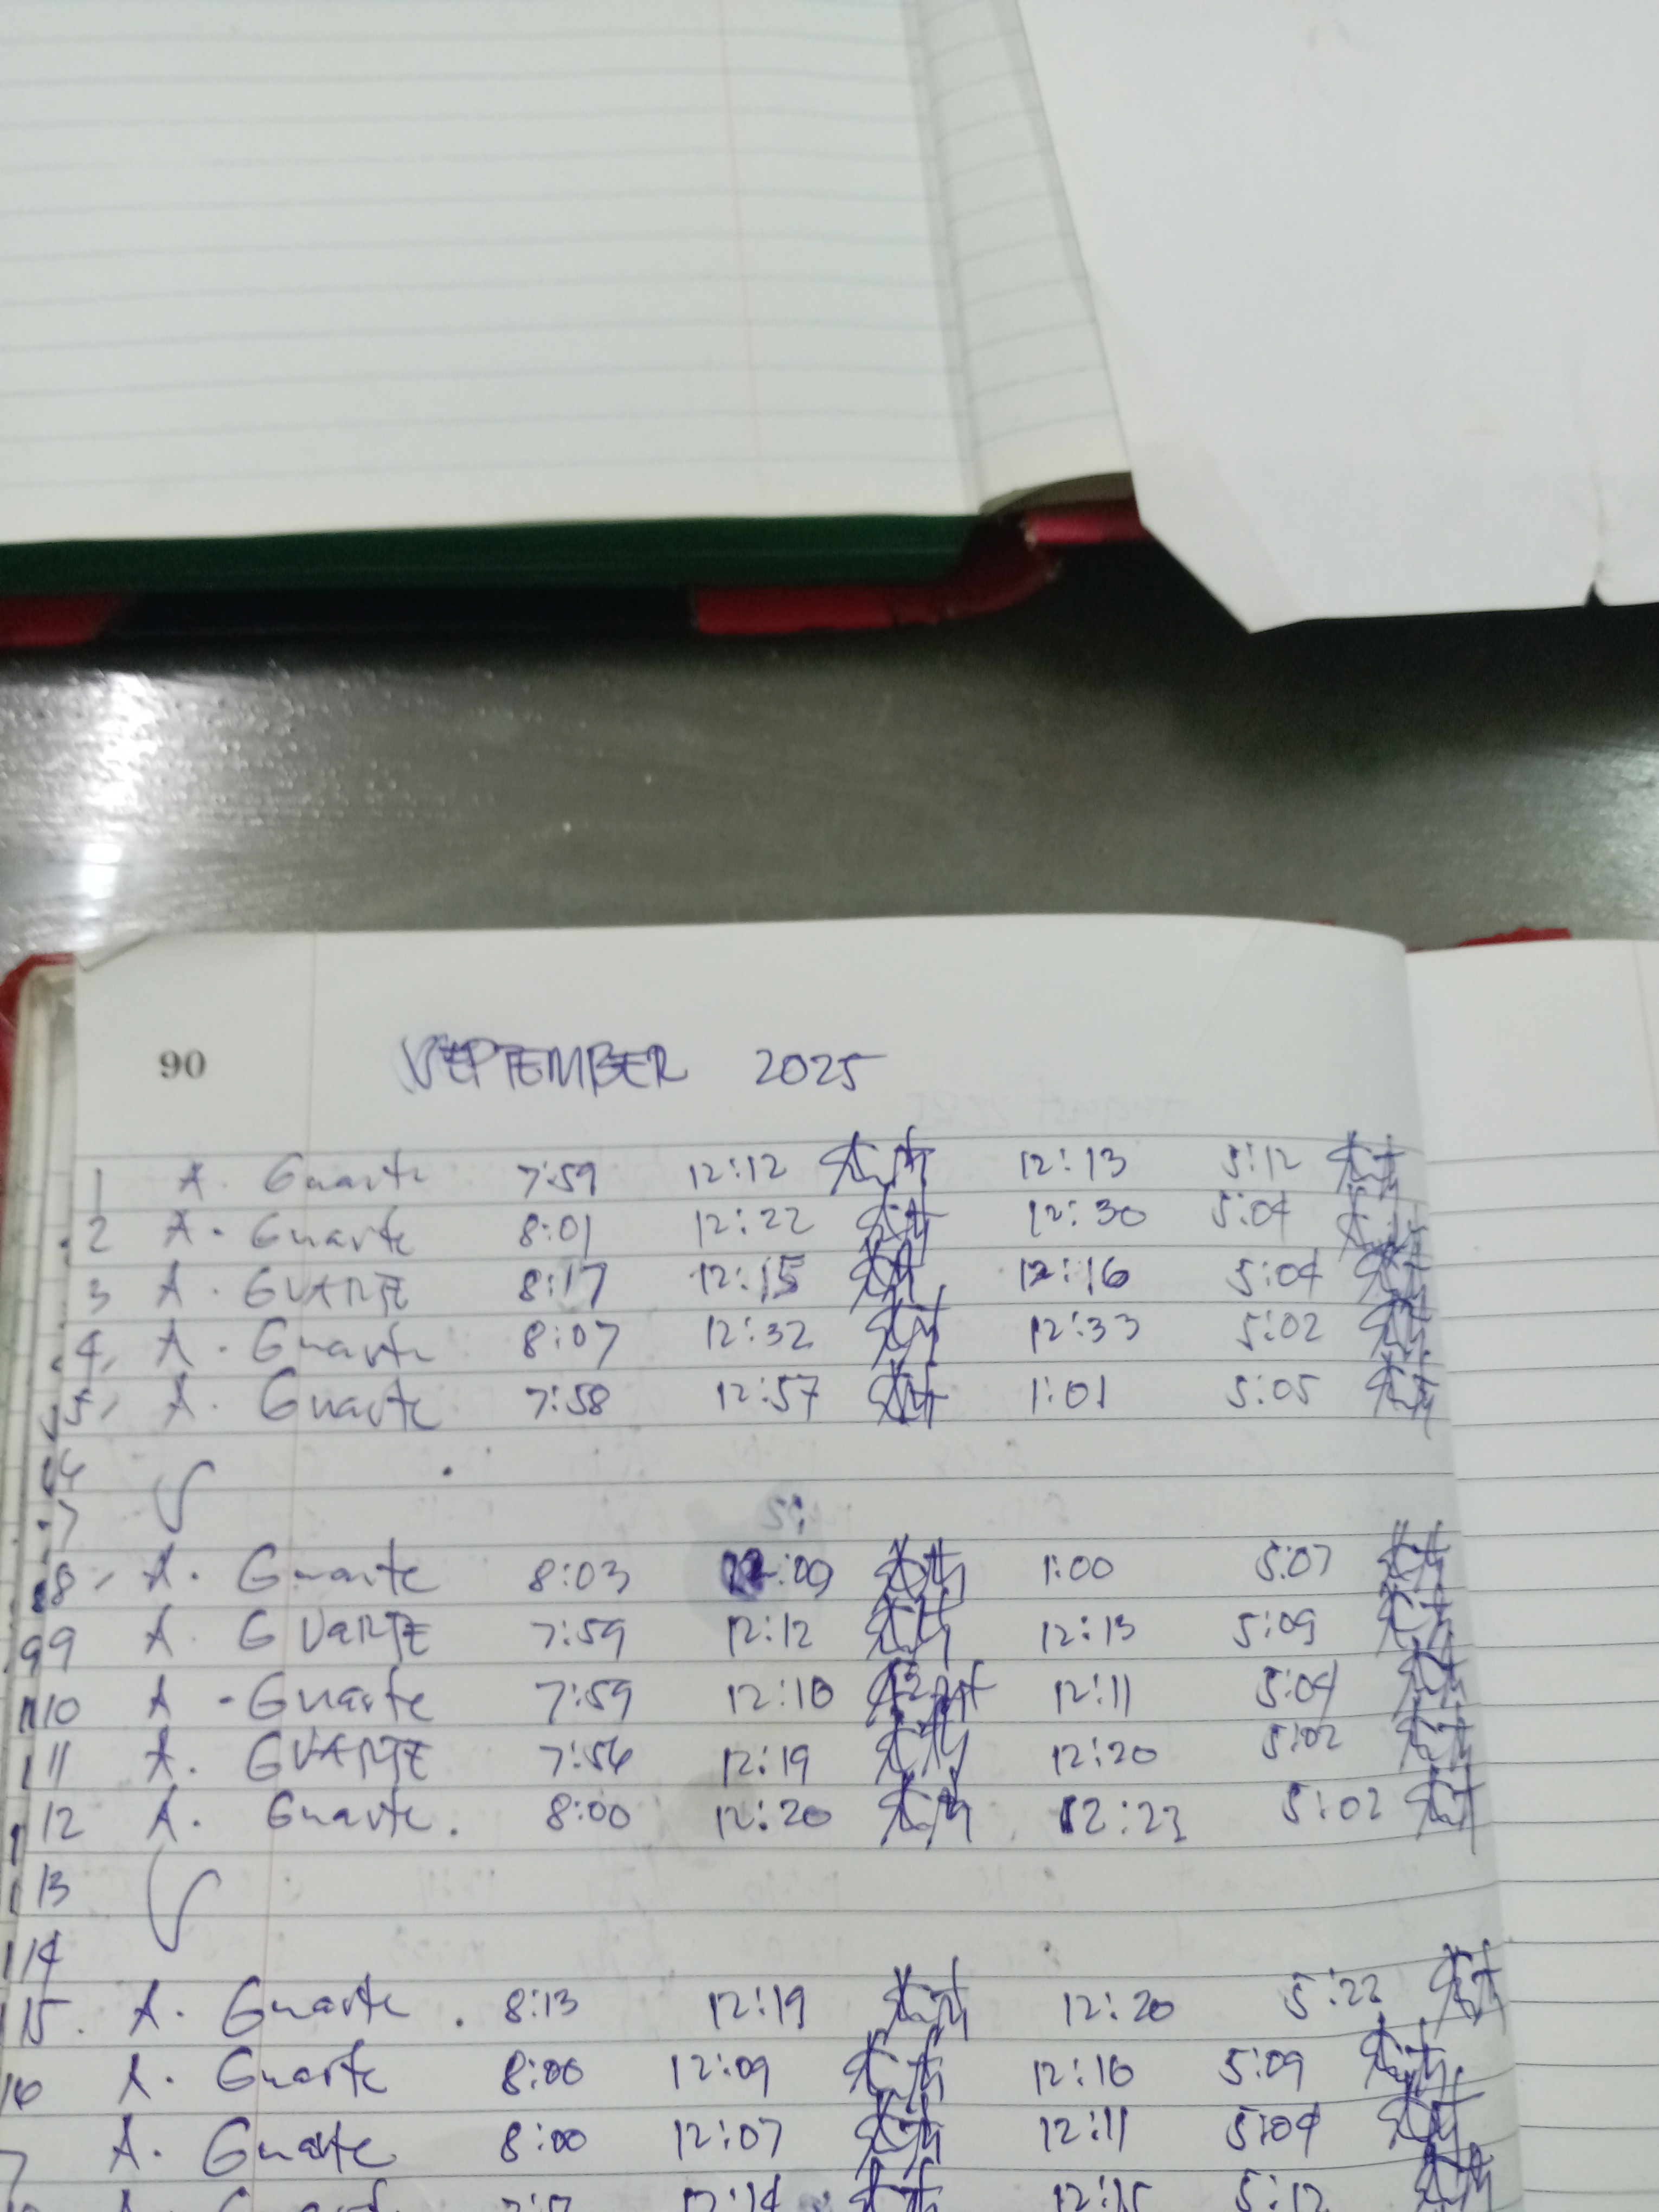 90 SEPTEMBER 2025
1 A. Guarte 7:59 12:12 12:13 5:12
2 A. Guarte 8:01 12:22 12:30 5:04
3 A. GUARTE 8:17 12:15 12:16 5:04
4, A. Guarte 8:07 12:32 12:33 5:02
5, A. Guarte 7:58 12:57 1:01 5:05
6
7
8, A. Guarte 8:03 12:09 1:00 5:07
9 A. GUARTE 7:59 12:12 12:13 5:09
10 A - Guarte 7:59 12:10 12:11 5:04
11 A. GUARTE 7:56 12:19 12:20 5:02
12 A. Guarte. 8:00 12:20 12:22 5:02
13
14
15. A. Guarte. 8:13 12:19 12:20 5:22
16 A. Guarte 8:00 12:09 12:10 5:09
7 A. Guarte 8:00 12:07 12:11 5:04
12:14 12:15 5:12